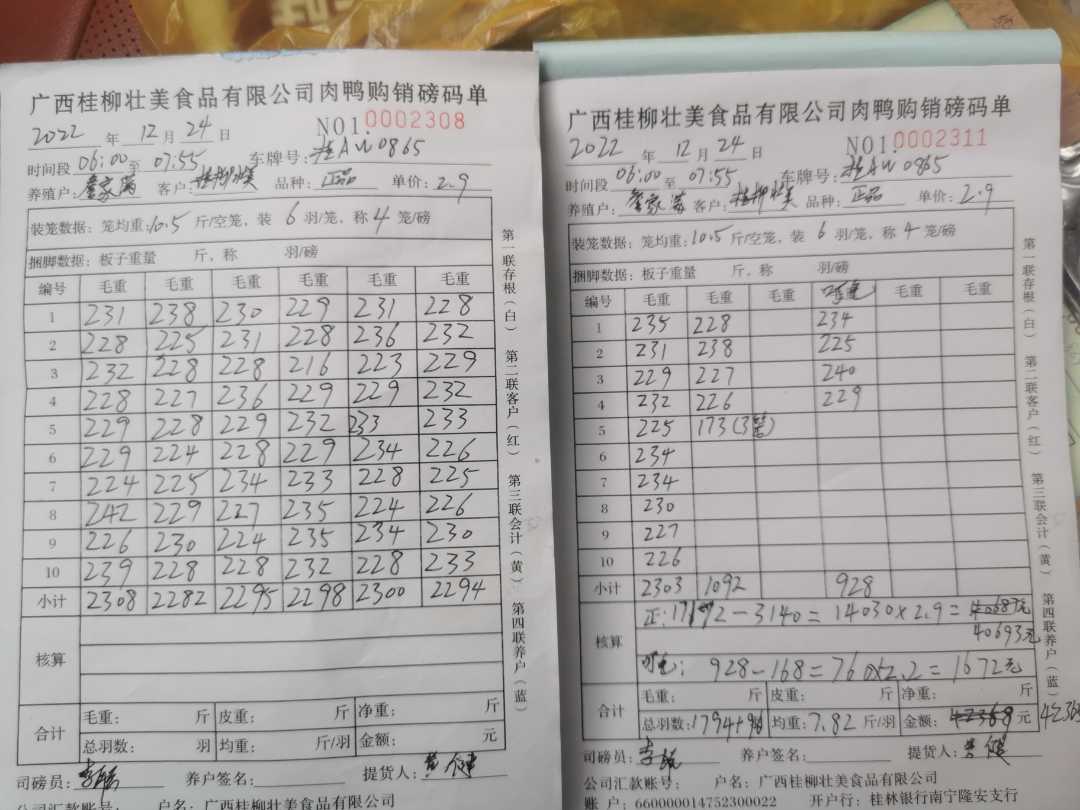 广西桂柳壮美食品有限公司肉鸭购销磅码单
2022 年 12 月 24 日 NO1.0002308
时间段 06:00 至 07:55 车牌号: 桂AW0865
养殖户: 家 客户: 桂柳壮美 品种: 正品 单价: 2.9
装笼数据: 笼均重: 10.5 斤/空笼, 装 6 羽/笼, 称 4 笼/磅
捆脚数据: 板子重量 斤, 称 羽/磅
编号 毛重 毛重 毛重 毛重 毛重 毛重
1 231 238 230 229 231 228
2 228 225 231 228 236 232
3 232 228 228 216 223 229
4 228 227 236 229 229 232
5 229 228 229 232 233 233
6 229 224 228 229 234 226
7 224 225 234 233 228 225
8 242 229 227 235 224 226
9 226 230 224 235 234 230
10 239 228 228 232 228 233
小计 2308 2282 2295 2298 2300 2294
核算
合计 毛重: 斤 皮重: 斤 净重: 斤
总羽数: 羽 均重: 斤/羽 金额: 元
司磅员: 李 养户签名: 提货人: 黄健
公司汇款账号: 户名: 广西桂柳壮美食品有限公司
第一联存根(白) 第二联客户(红) 第三联会计(黄) 第四联养户(蓝)
广西桂柳壮美食品有限公司肉鸭购销磅码单
2022 年 12 月 24 日 NO1.0002311
时间段 06:00 至 07:55 车牌号: 桂AW0865
养殖户: 家 客户: 桂柳壮美 品种: 正品 单价: 2.9
装笼数据: 笼均重: 10.5 斤/空笼, 装 6 羽/笼, 称 4 笼/磅
捆脚数据: 板子重量 斤, 称 羽/磅
编号 毛重 毛重 毛重 毛重 毛重
1 235 228 234
2 231 238 225
3 229 227 240
4 232 226 229
5 225 173(3笼)
6 234
7 234
8 230
9 227
10 226
小计 2303 1092 928
核算 正: 17172-3140=14030×2.9=40687元
40693元
928-168=760×2.2=1672元
合计 毛重: 斤 皮重: 斤 净重: 斤
总羽数: 1794+96 均重: 7.82 斤/羽 金额: 42368 元 4236
司磅员: 李 养户签名: 提货人: 黄健
公司汇款账号: 户名: 广西桂柳壮美食品有限公司
账 户: 660000014752300022 开户行: 桂林银行南宁隆安支行
第一联存根(白) 第二联客户(红) 第三联会计(黄) 第四联养户(蓝)